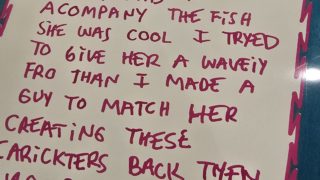 ACOMPANY THE FISH
SHE WAS COOL I TRYED
TO GIVE HER A WAVEIY
FRO THAN I MADE A
GUY TO MATCH HER
CREATING THESE
CARICKTERS BACK THEN